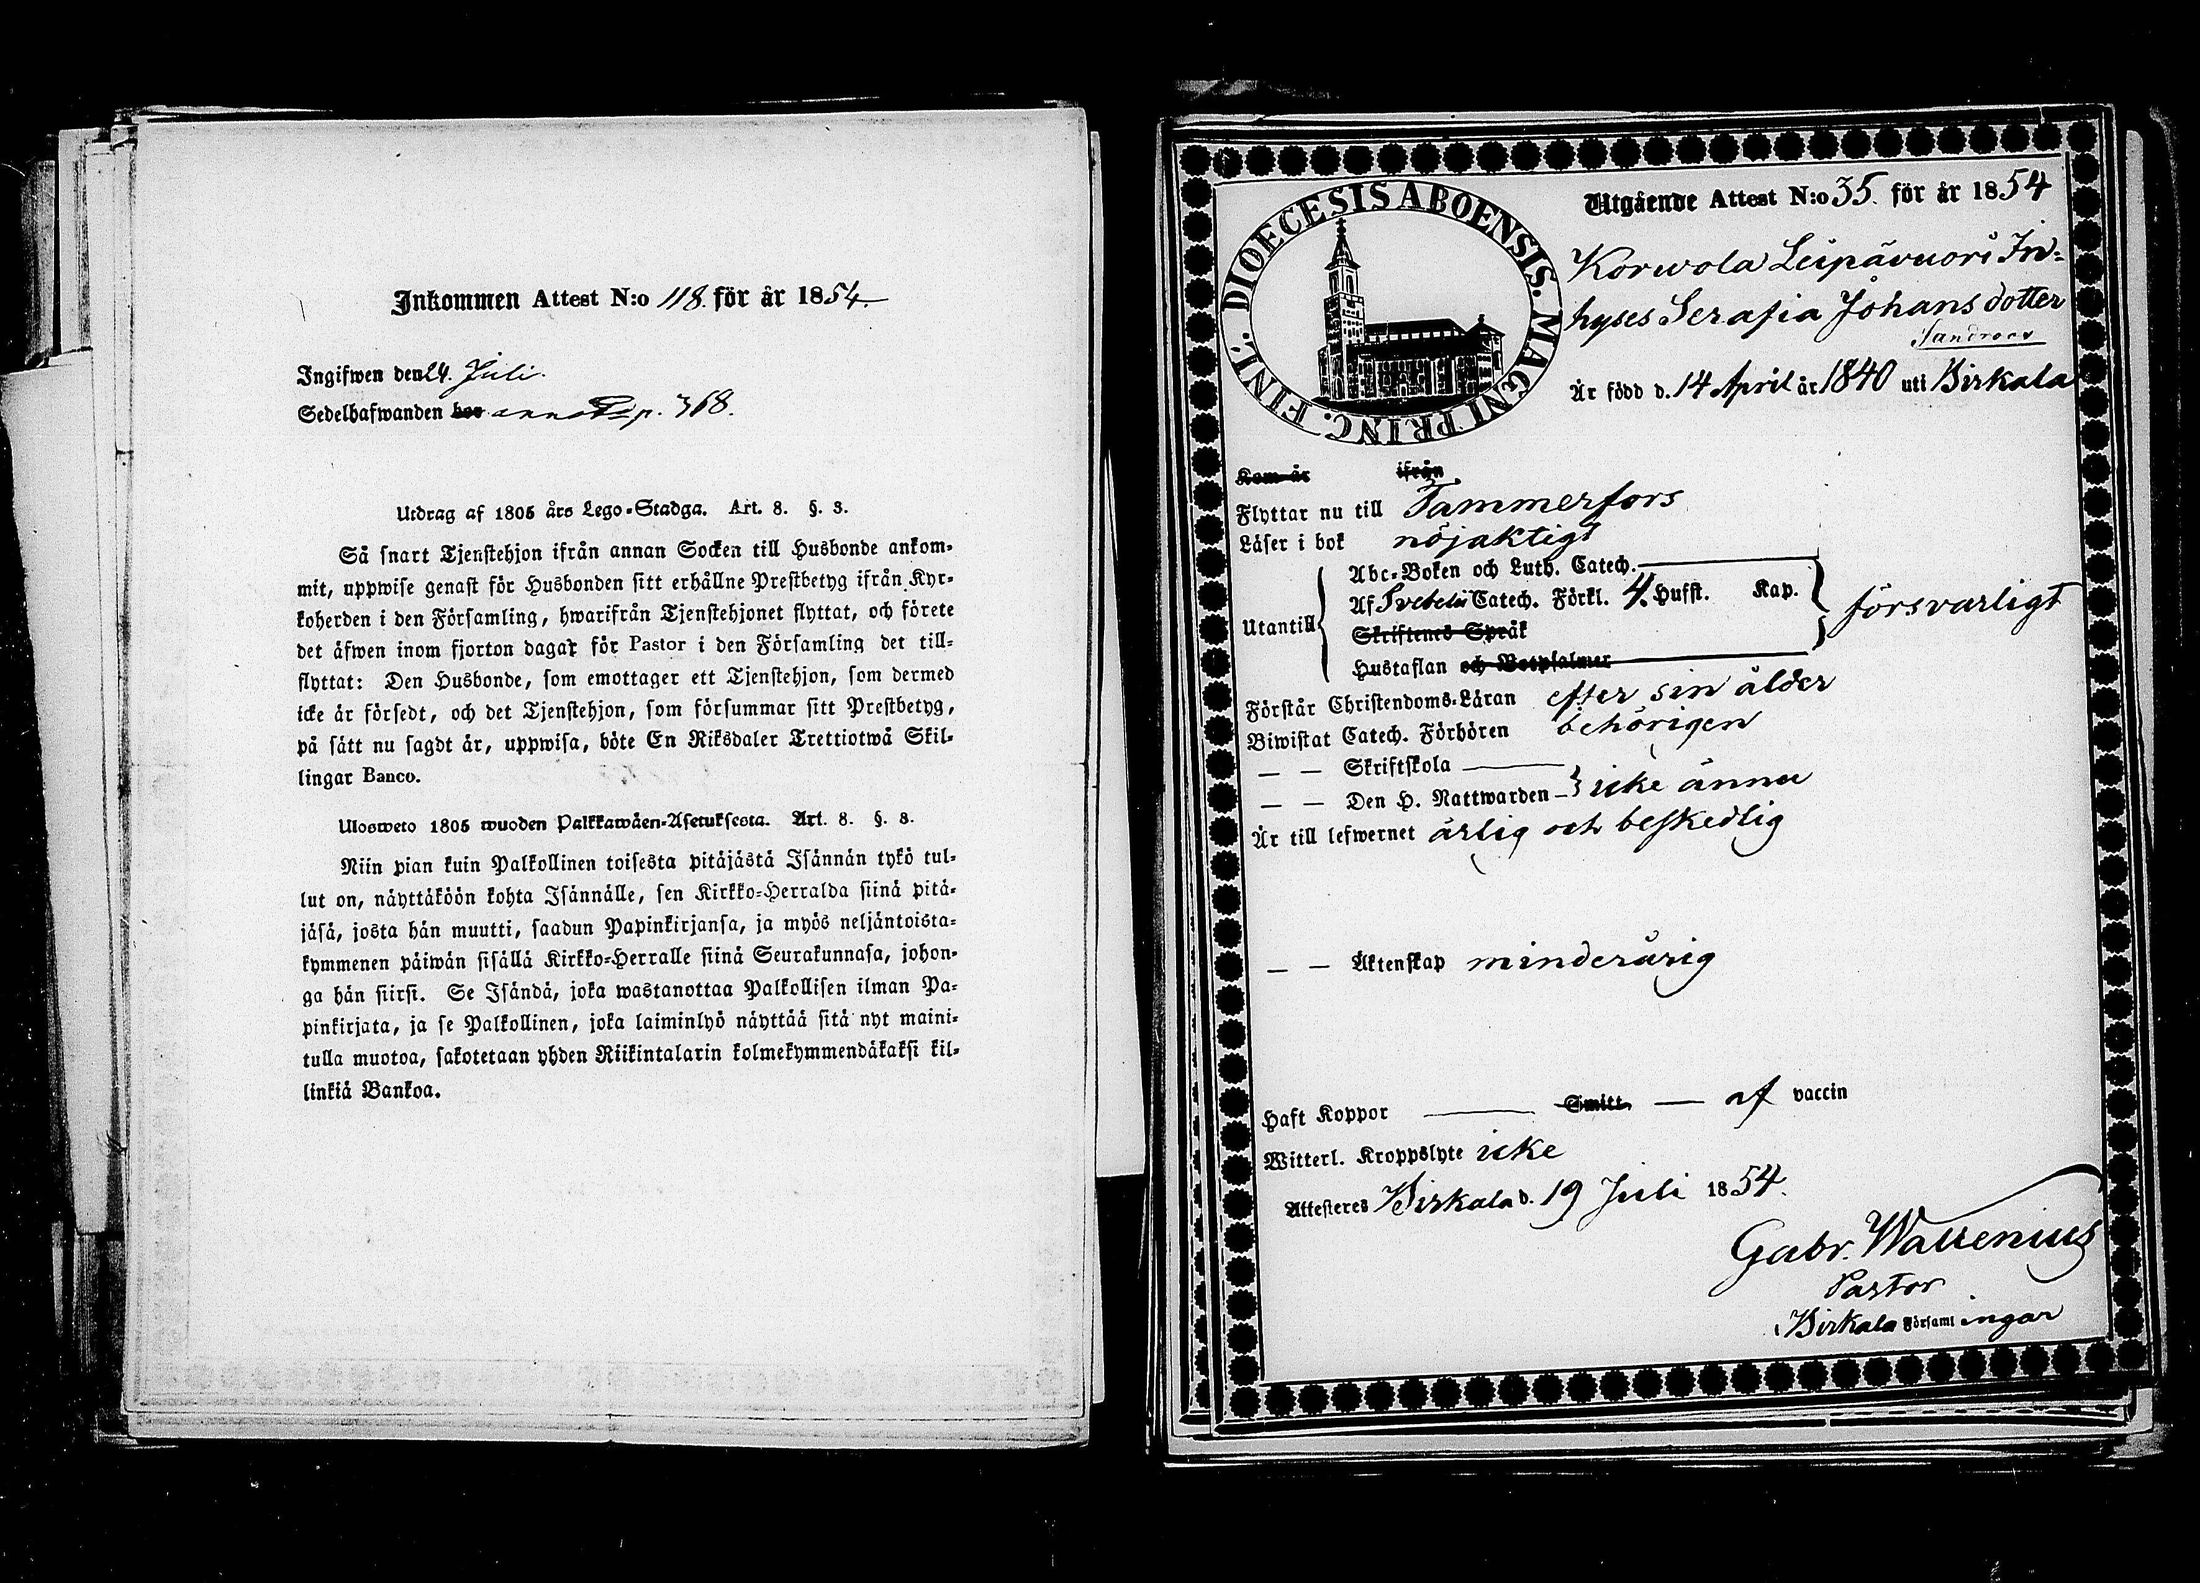 Inkommen Attest N:o 118. för år 1854.
Ingifwen den 24. Juli.
Sedelhafwanden bor annot. p. 368.
Utdrag af 1805 års Lego-Stadga. Art. 8. §. 3.
Så snart Tjenstehjon ifrån annan Socken till Husbonde ankom-
mit, uppwise genast för Husbonden sitt erhållne Prestbetyg ifrån Kyr-
koherden i den Församling, hwarifrån Tjenstehjonet flyttat, och förete
det äfwen inom fjorton dagar för Pastor i den Församling det till-
flyttat: Den Husbonde, som emottager ett Tjenstehjon, som dermed
icke är försedt, och det Tjenstehjon, som försummar sitt Prestbetyg,
på sätt nu sagdt är, uppwisa, böte En Riksdaler Trettiotwå Skil-
lingar Banco.
Ulosweto 1805 wuoden Palkkawäen-Asetuksesta. Art. 8. §. 3.
Niin pian kuin Palkollinen toisesta pitäjästä Isännän tykö tul-
lut on, näyttäköön kohta Isännälle, sen Kirkko-Herralda siinä pitä-
jäsä, josta hän muutti, saadun Papinkirjansa, ja myös neljäntoista-
kymmenen päiwän sisällä Kirkko-Herralle siinä Seurakunnasa, johon-
ga hän siirsi. Se Isändä, joka wastanottaa Palkollisen ilman Pa-
pinkirjata, ja se Palkollinen, joka laiminlyö näyttää sitä nyt maini-
tulla muotoa, sakotetaan yhden Riikintalarin kolmekymmendäkaksi kil-
linkiä Bankoa.
DIOECESIS ABOENSIS. MAGNI PRINC. FINL.
Utgående Attest N:o 35. för år 1854
Korwola Leipävuori In-
hyses Serafia Johansdotter
Sandroos
Är född d. 14 April år 1840 uti Birkala
Kom år ifrån
Flyttar nu till Tammerfors
Läser i bok nöjaktigt
Utantill
Abc-Boken och Luth. Catech.
Af Svebelii Catech. Förkl. 4. Hufst. Kap. försvarligt
Skriftenes Språk
Hustaflan och Botpsalmer
Förstår Christendoms-Läran efter sin ålder
Biwistat Catech. Förhören behörigen
— — Skriftskola
— — Den H. Nattwarden icke ännu
Är till lefwernet ärlig och beskedlig
— — Äktenskap minderårig
Haft Koppor — Smitt. — af vaccin
Witterl. Kroppslyte icke
Attesteres Birkala d. 19 Juli 1854.
Gabr. Wallenius
Pastor
i Birkala Församlingar